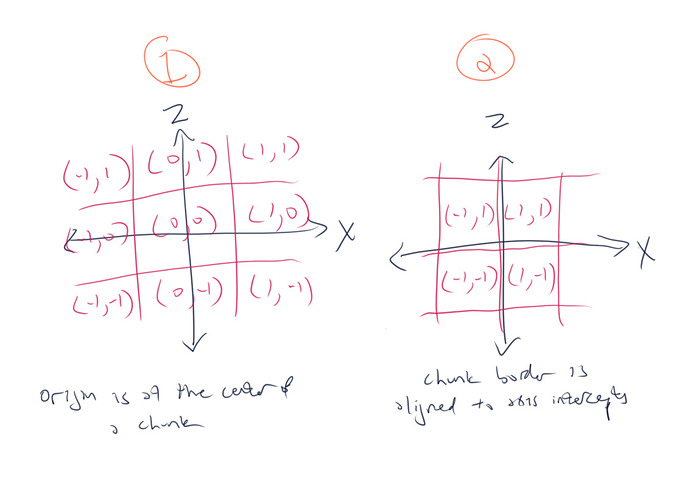 1
2
Z
Z
(-1,1) (0,1) (1,1)
(-1,0) (0,0) (1,0)
X
(-1,-1) (0,-1) (1,-1)
(-1,1) (1,1)
X
(-1,-1) (1,-1)
origin is at the center of
a chunk
chunk border is
aligned to axis intercepts